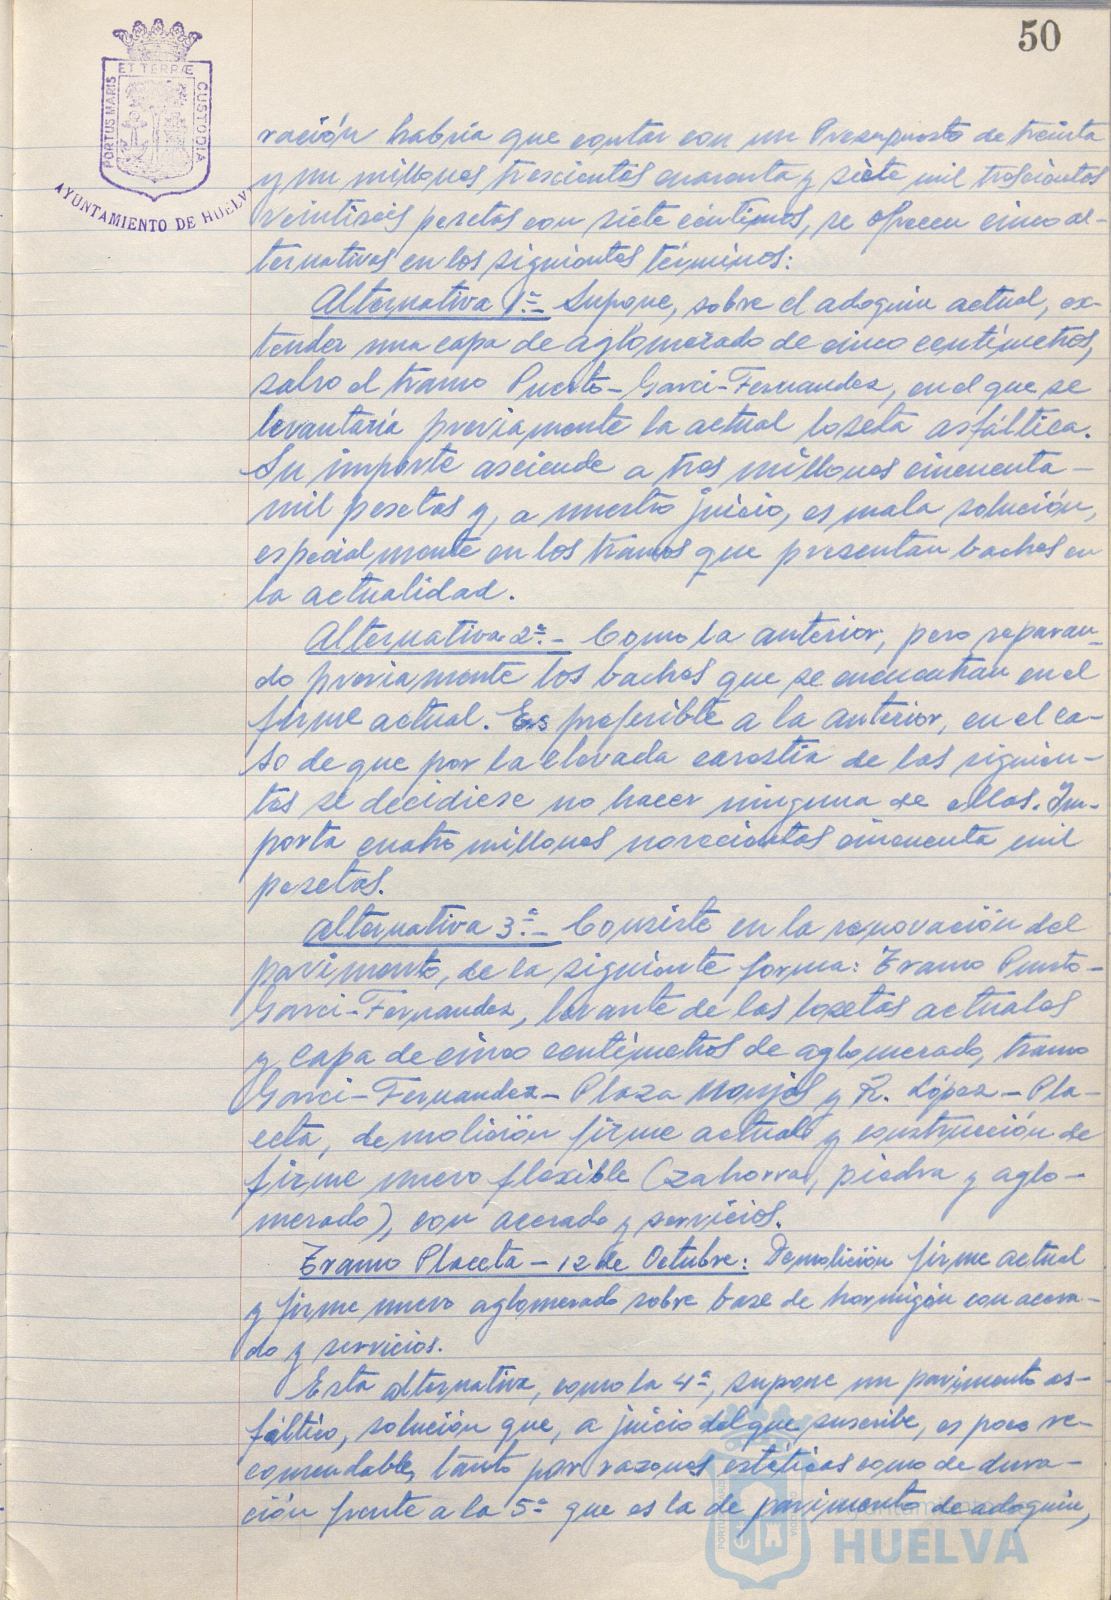 50
ET TERRÆ
PORTUS MARIS
CUSTODIA
AYUNTAMIENTO DE HUELVA
ración habría que contar con un Presupuesto de treinta
y un millones trescientas cuarenta y siete mil trescientas
veintiseis pesetas con siete céntimos, se ofrecen cinco al-
ternativas en los siguientes términos:
Alternativa 1ª.- Supone, sobre el adoquin actual, ex-
tender una capa de aglomerado de cinco centímetros,
salvo el tramo Puerto-Garci-Fernandez, en el que se
levantaría previamente la actual loseta asfáltica.
Su importe asciende a tres millones cincuenta-
mil pesetas y, a nuestro juicio, es mala solución,
especialmente en los tramos que presentan baches en
la actualidad.
Alternativa 2ª.- Como la anterior, pero reparan-
do previamente los baches que se encuentran en el
firme actual. Es preferible a la anterior, en el ca-
so de que por la elevada carestia de las siguien-
tes se decidiese no hacer ninguna de ellas. Im-
porta cuatro millones novecientas cincuenta mil
pesetas.
Alternativa 3ª.- Consiste en la renovación del
pavimento, de la siguiente forma: Tramo Puerto-
Garci-Fernandez, levante de las losetas actuales
y capa de cinco centímetros de aglomerado, tramo
Garci-Fernandez-Plaza Monjas y R. López-Pla-
ceta, demolición firme actual y construcción de
firme nuevo flexible (zahorra, piedra y aglo-
merado), con acerado y servicios.
Tramo Placeta-12 de Octubre: Demolición firme actual
y firme nuevo aglomerado sobre base de hormigón con acera-
do y servicios.
Esta alternativa, como la 4ª, supone un pavimento as-
fáltico, solución que, a juicio del que suscribe, es poco re-
comendable, tanto por razones estéticas como de dura-
ción frente a la 5ª que es la de pavimento de adoquin,
Ayuntamiento de
HUELVA